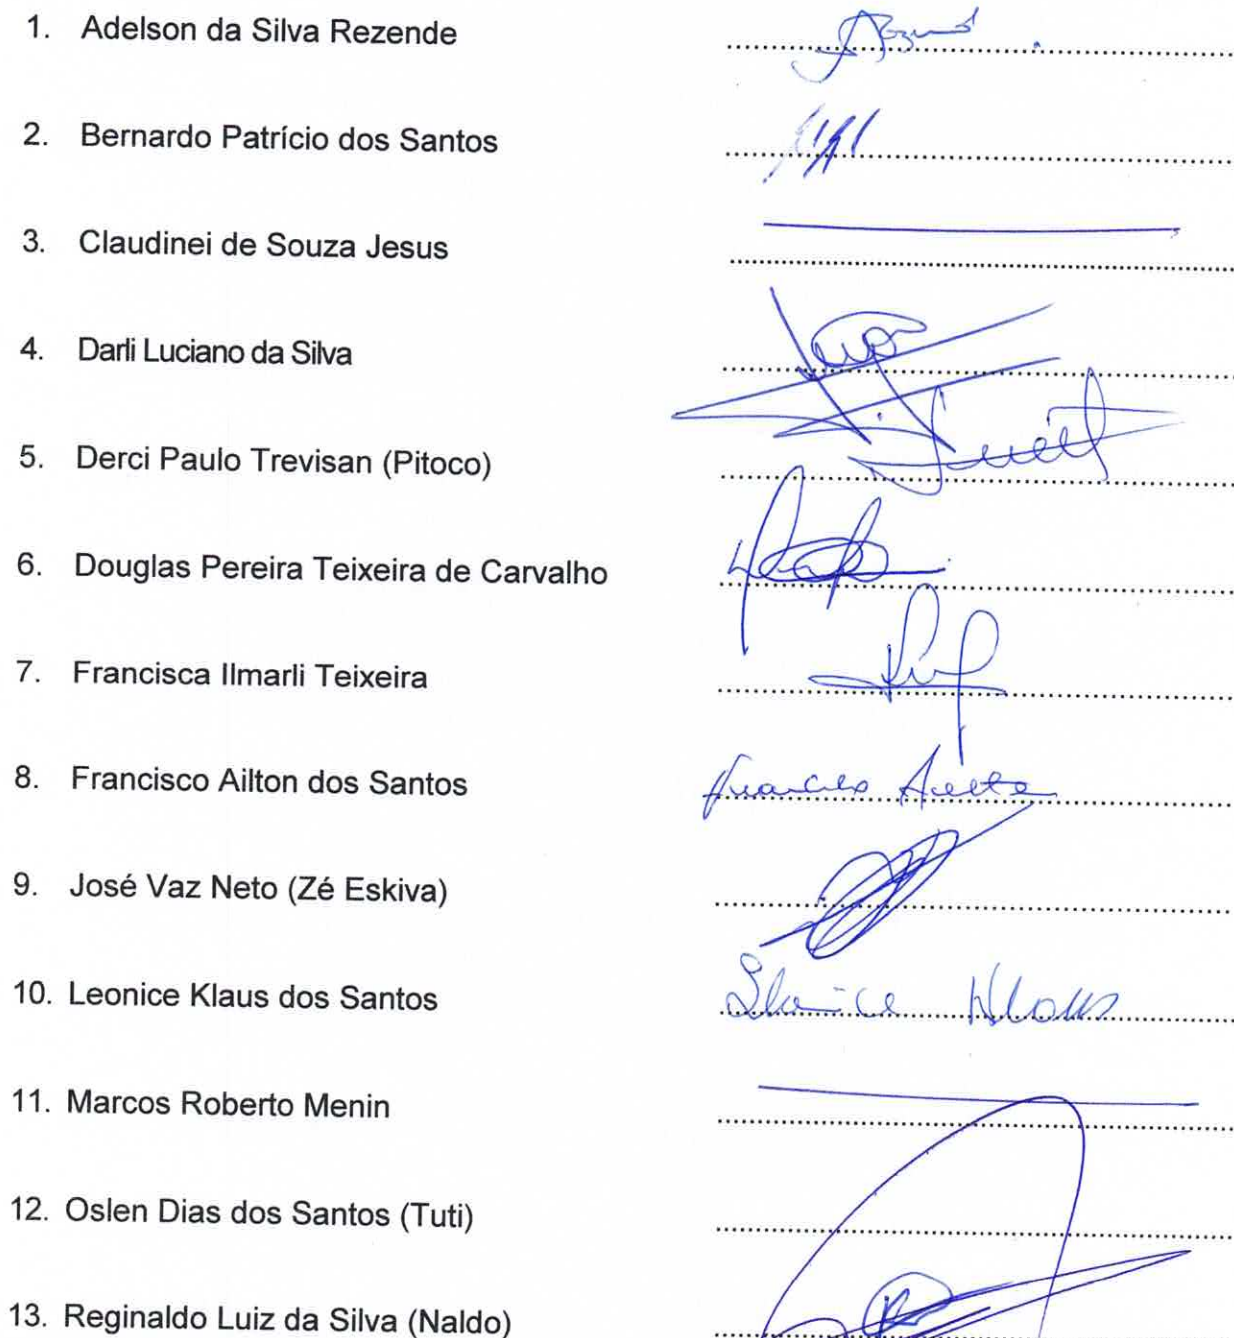 1. Adelson da Silva Rezende
2. Bernardo Patrício dos Santos
3. Claudinei de Souza Jesus
4. Darli Luciano da Silva
5. Derci Paulo Trevisan (Pitoco)
6. Douglas Pereira Teixeira de Carvalho
7. Francisca Ilmarli Teixeira
8. Francisco Ailton dos Santos
9. José Vaz Neto (Zé Eskiva)
10. Leonice Klaus dos Santos
11. Marcos Roberto Menin
12. Oslen Dias dos Santos (Tuti)
13. Reginaldo Luiz da Silva (Naldo)